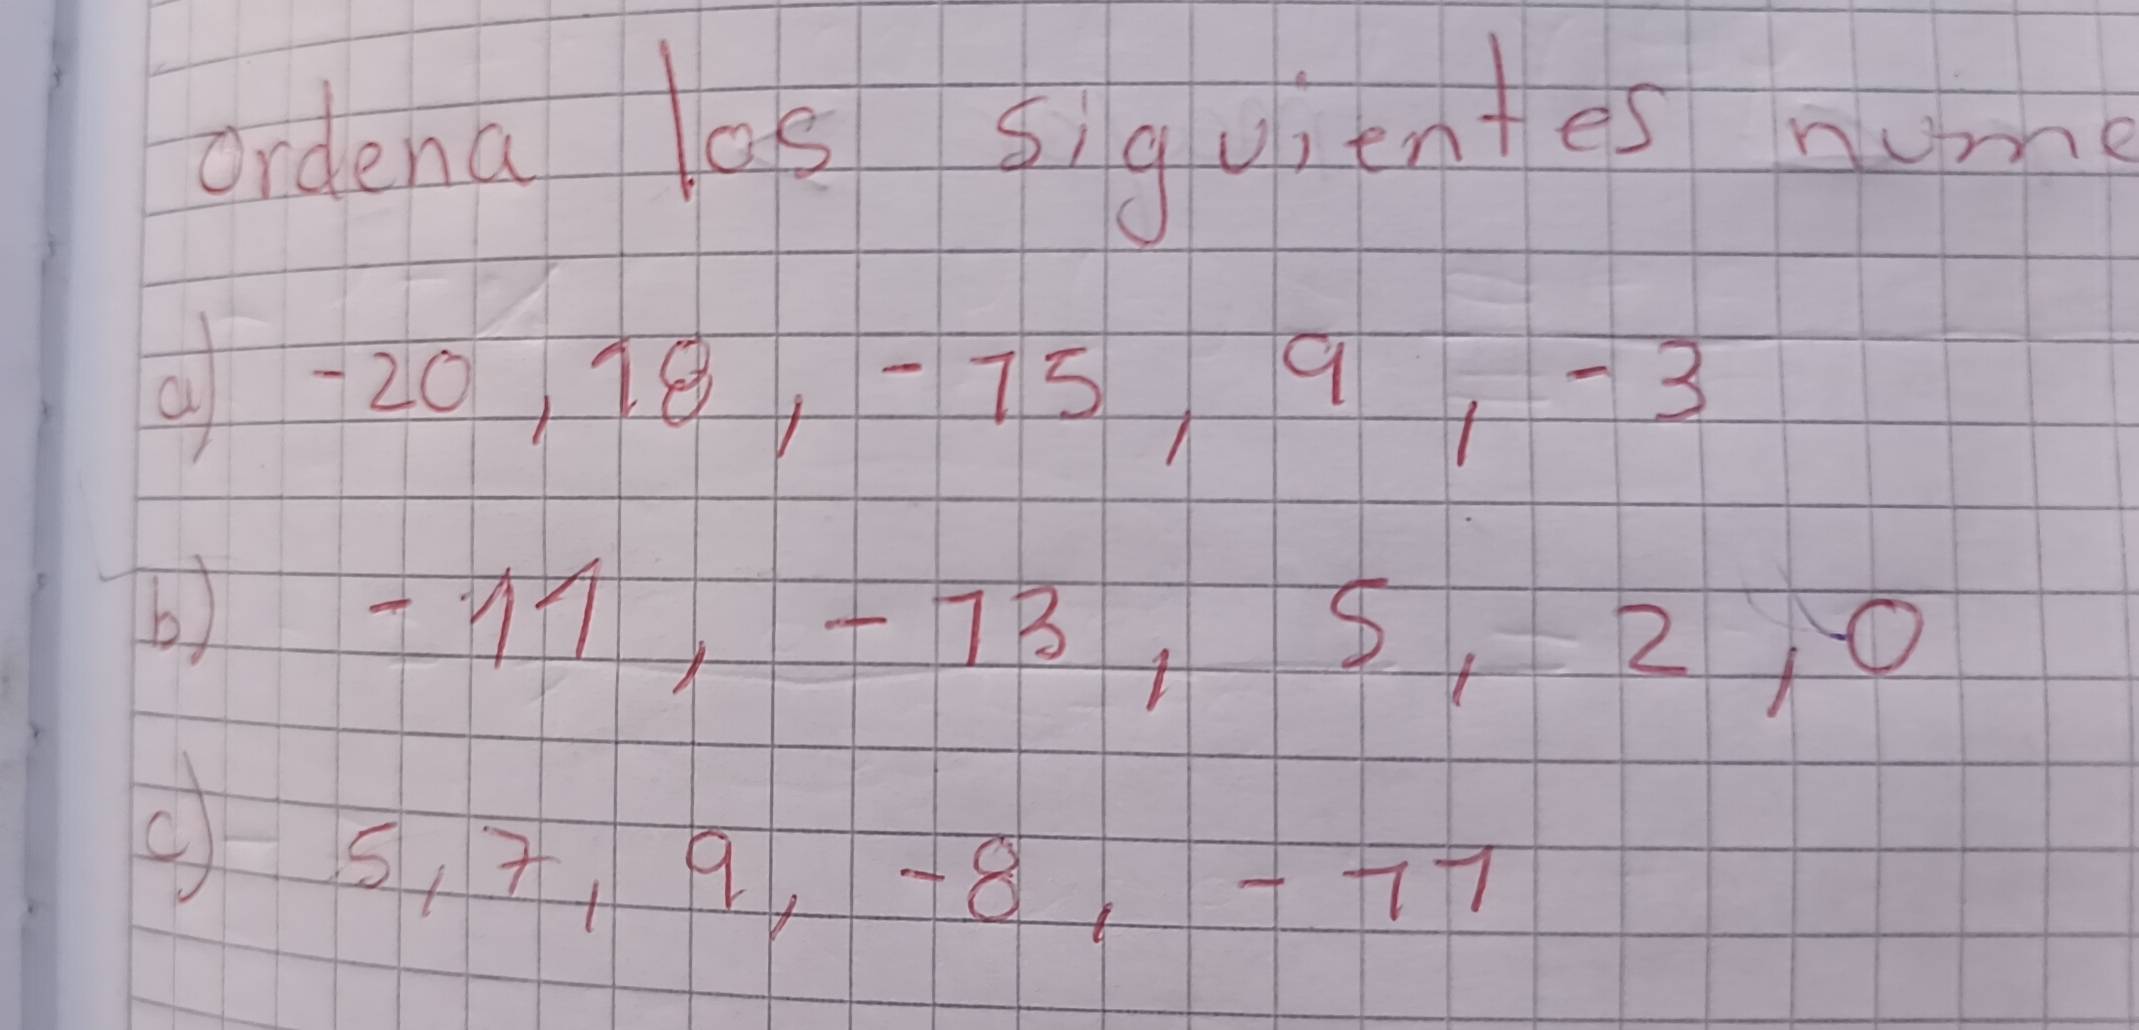 ordena los siguientes nume
a) -20, 18, -15, 9, -3
b) -11, -13, 5, 2, 0
c) 5, 7, 9, -8, -11